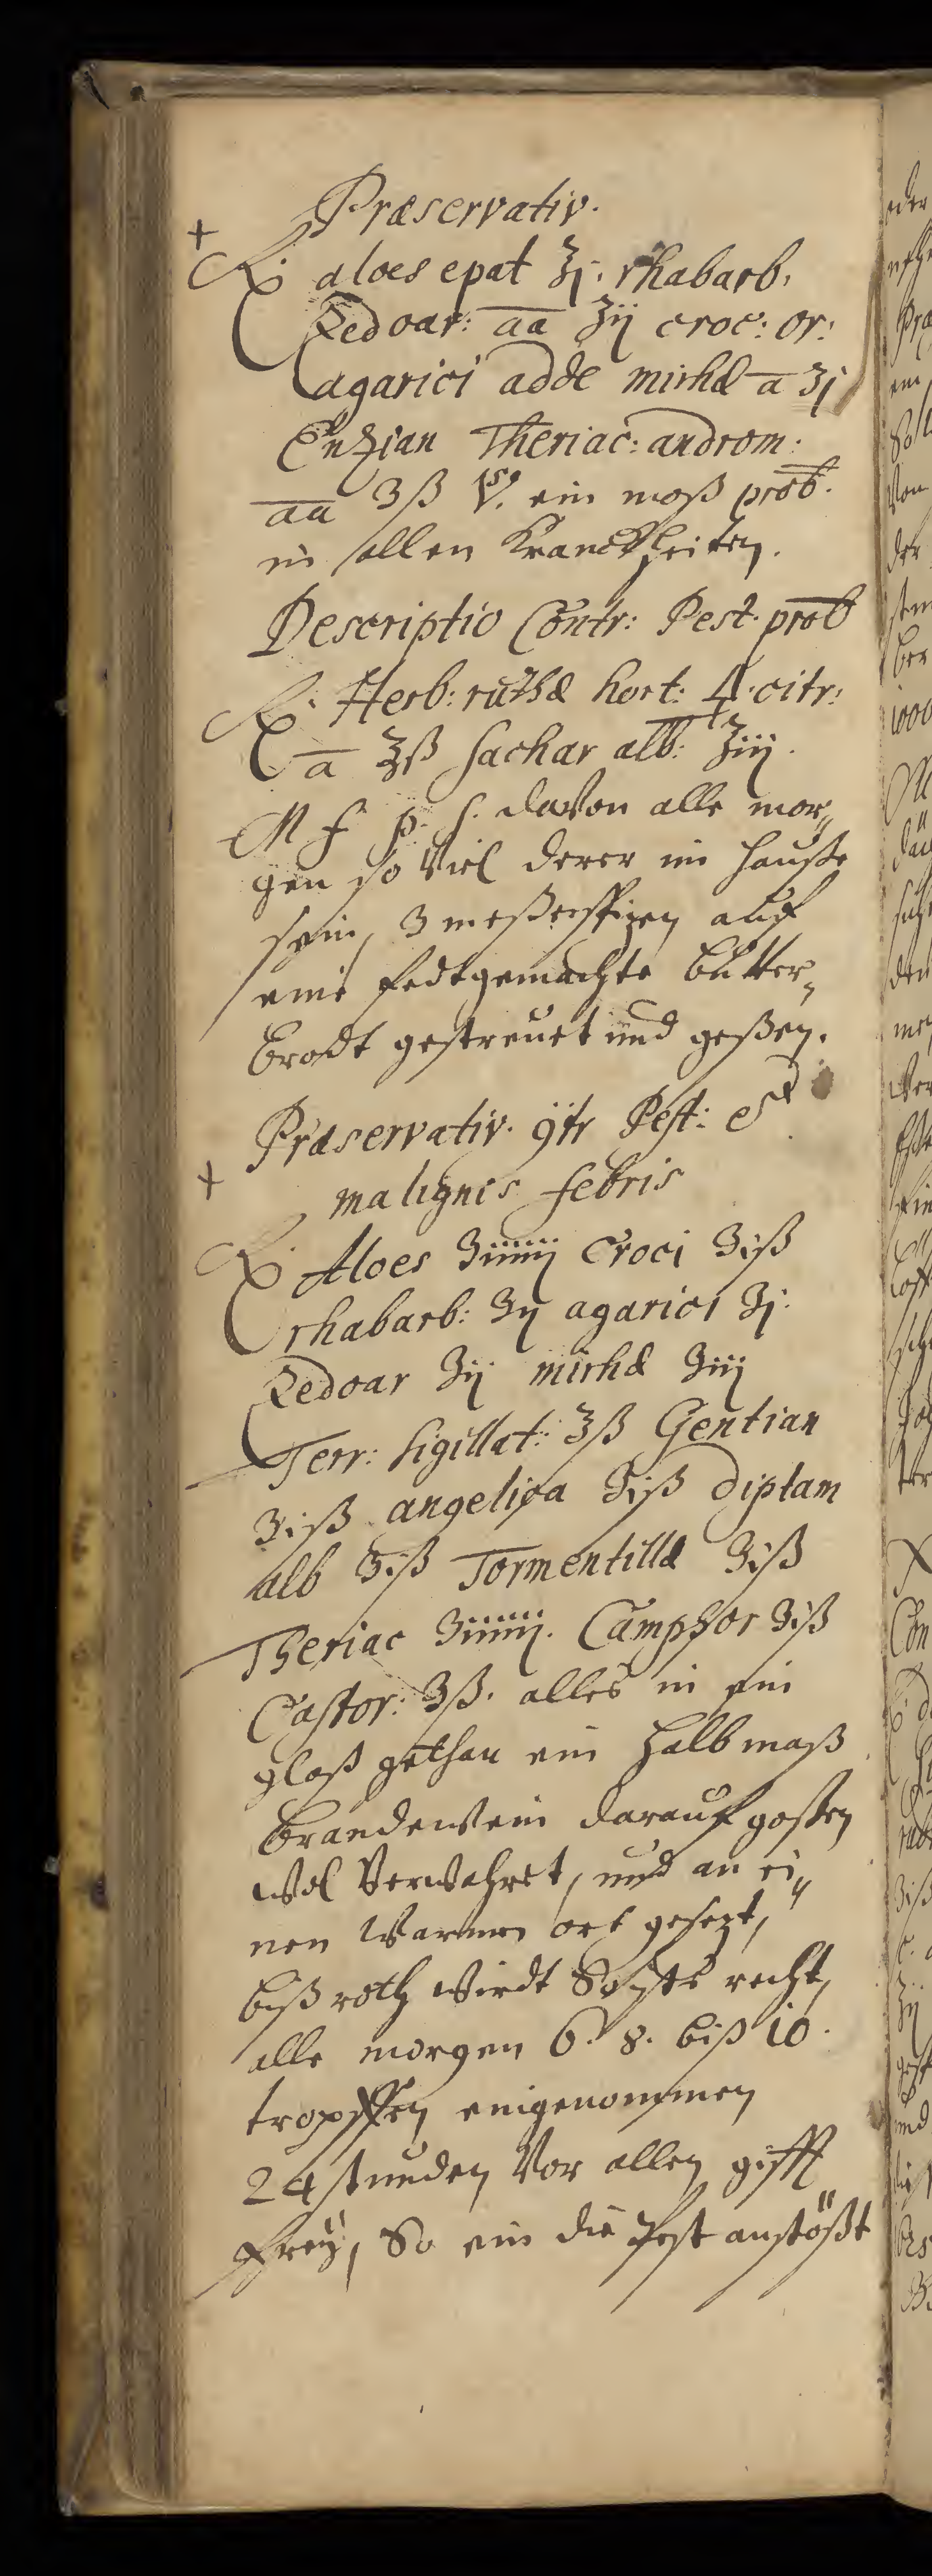 Præservativ.
+
℞ aloes epat ℥j. rhabarb.
Zedoar: aa ʒij croc: or:
agarici adde mirhæ a ʒj
Enzian Theriac: androm:
aa ʒß ein moß prob.
in allen Kranckheiten.
Descriptio Contr: Pest. prob
℞ Herb: ruthæ hort: citr:
a ℥ß sachar alb: ℥iij.
M f p. s. davon alle mor„
gen so viel derer im hauße
sein, 3 meßerspizen auf
eine fedtgemachte butter„
brodt gestreuet und geßen.
Præservativ. 9tr Pest: et
+ malignis febris
℞ Aloes ʒiiiiij Croci ʒiß
rhabarb: ʒij agarici ʒj.
Zedoar ʒij mirhæ ʒiij
Terr: sigillat: ʒß Gentian
ʒiß angelica ʒiß diptam
alb ʒiß Tormentillæ ʒiß
Theriac ʒiiiiij. Camphor ʒiß
Castor: ʒß. alles in ein
glaß gethan ein halb maß
brandewein darauf goßen
wol verwahret, und an ei„
nen warmen ort gesezt,
biß roth wirdt So ists recht,
alle morgen 6. 8. biß 10.
tropffen eingenommen
24 stunden vor allen gifft
frey, So ein die Pest anstößt